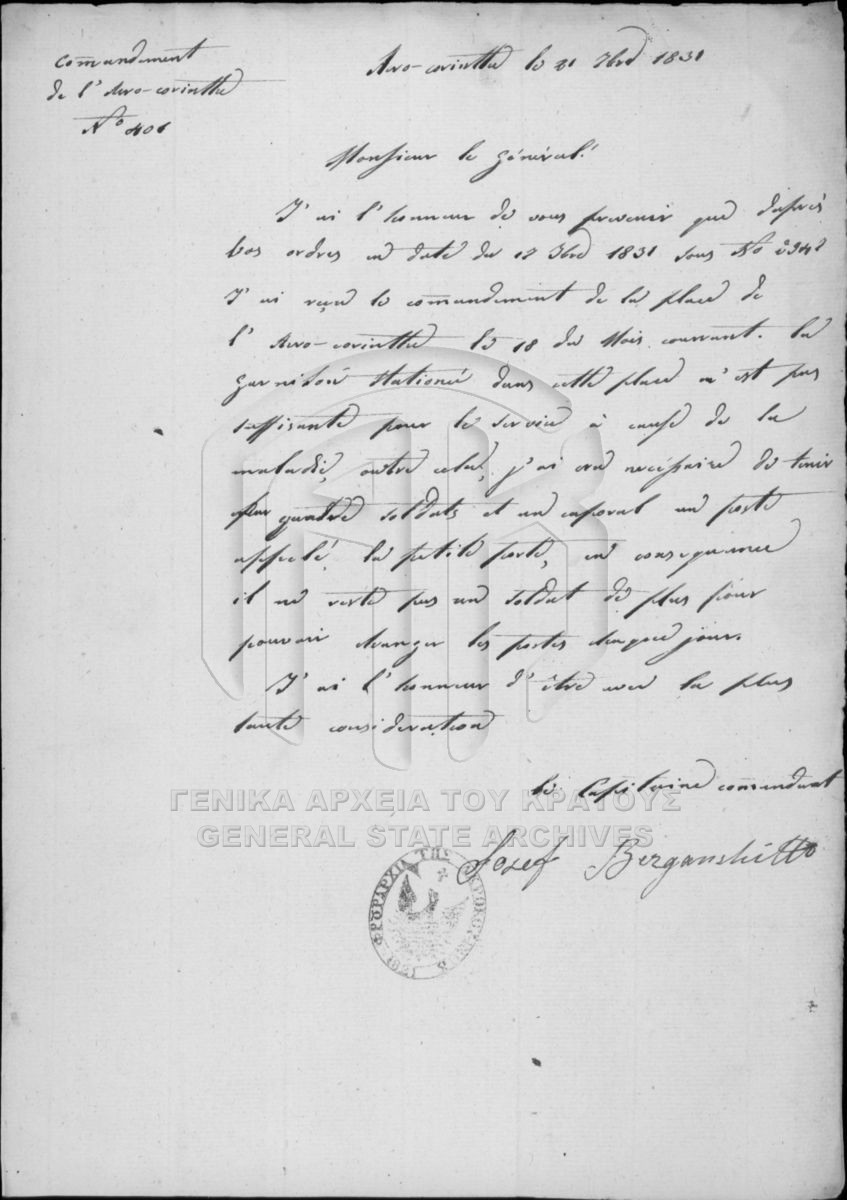 Commandement
de l'Acro-corinthe
No 406
Acro-corinthe le 21 7bre 1831
Monsieur le Général!
J'ai l'honneur de vous prevenir que d'après
Vos ordres en date du 12 7bre 1831 sous No 2942
J'ai reçu le commandement de la place de
l'Acro-corinthe le 18 du Mois courrant. La
garnison stationée dans cette place n'est pas
suffisante pour le service à cause de la
maladie, outre cela, j'ai cru necéssaire de tenir
par quatre soldats et un caporal un poste
appelé la petite porte, en consequence
il ne reste pas un soldat de plus pour
pouvoir changer les postes chaque jour.
J'ai l'honneur d'être avec la plus
haute consideration
le Capitaine commandant
Josef Berganshitto
ΓΕΝΙΚΑ ΑΡΧΕΙΑ ΤΟΥ ΚΡΑΤΟΥΣ
GENERAL STATE ARCHIVES
ΦΡΟΥΡΑΡΧΙΑ ΤΗΣ ΑΚΡΟΚΟΡΙΝΘΟΥ